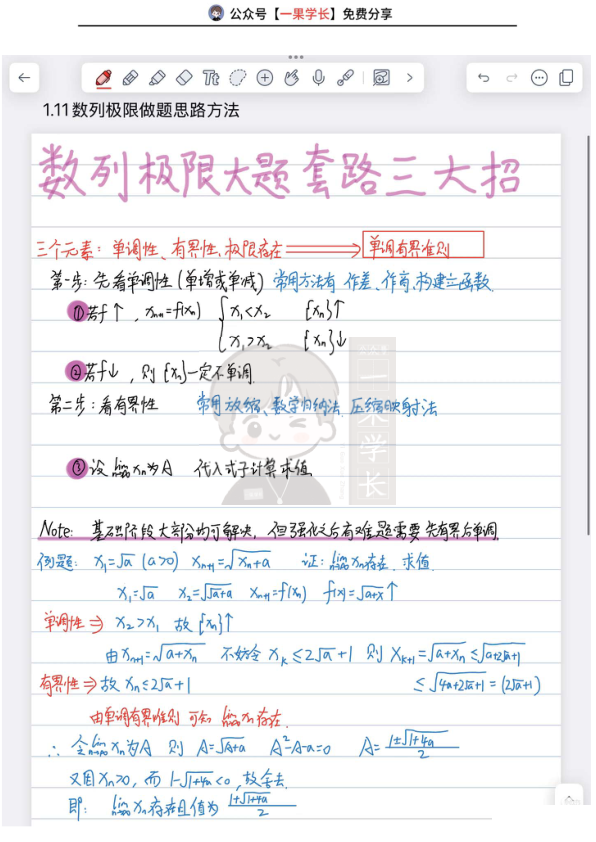 公众号【一果学长】免费分享
1.11数列极限做题思路方法
数列极限大题套路三大招
三个元素：单调性、有界性、极限存在 ⟹ 单调有界准则
第一步：先看单调性（单增或单减）常用方法有 作差、作商、构建立函数
①若f↑，xₙ₊₁=f(xₙ) { x₁<x₂ {xₙ}↑
x₁>x₂ {xₙ}↓
②若f↓，则{xₙ}一定不单调
第二步：看有界性 常用放缩、数学归纳法、压缩映射法
③设 lim n→∞ xₙ为A 代入式子计算求值
公众号
一果学长
Note: 基础阶段大部分均可解决，但强化之后有难题需要先有界后单调
例题：x₁=√a (a>0) xₙ₊₁=√(xₙ+a) 证：lim n→∞ xₙ存在，求值
x₁=√a x₂=√(√a+a) xₙ₊₁=f(xₙ) f(x)=√(a+x)↑
单调性⇒ x₂>x₁ 故{xₙ}↑
由xₙ₊₁=√(a+xₙ) 不妨令 xₖ≤2√a+1 则 xₖ₊₁=√(a+xₙ)≤√(a+2√a+1)
有界性⇒故 xₙ≤2√a+1 ≤√(4a+2√a+1)=(2√a+1)
由单调有界准则 可知 lim n→∞ xₙ存在
∴ 令 lim n→∞ xₙ为A 则 A=√(A+a) A²-A-a=0 A=(1±√(1+4a))/2
又因xₙ>0，而 1-√(1+4a)<0，故舍去
即：lim n→∞ xₙ存在且值为 (1+√(1+4a))/2